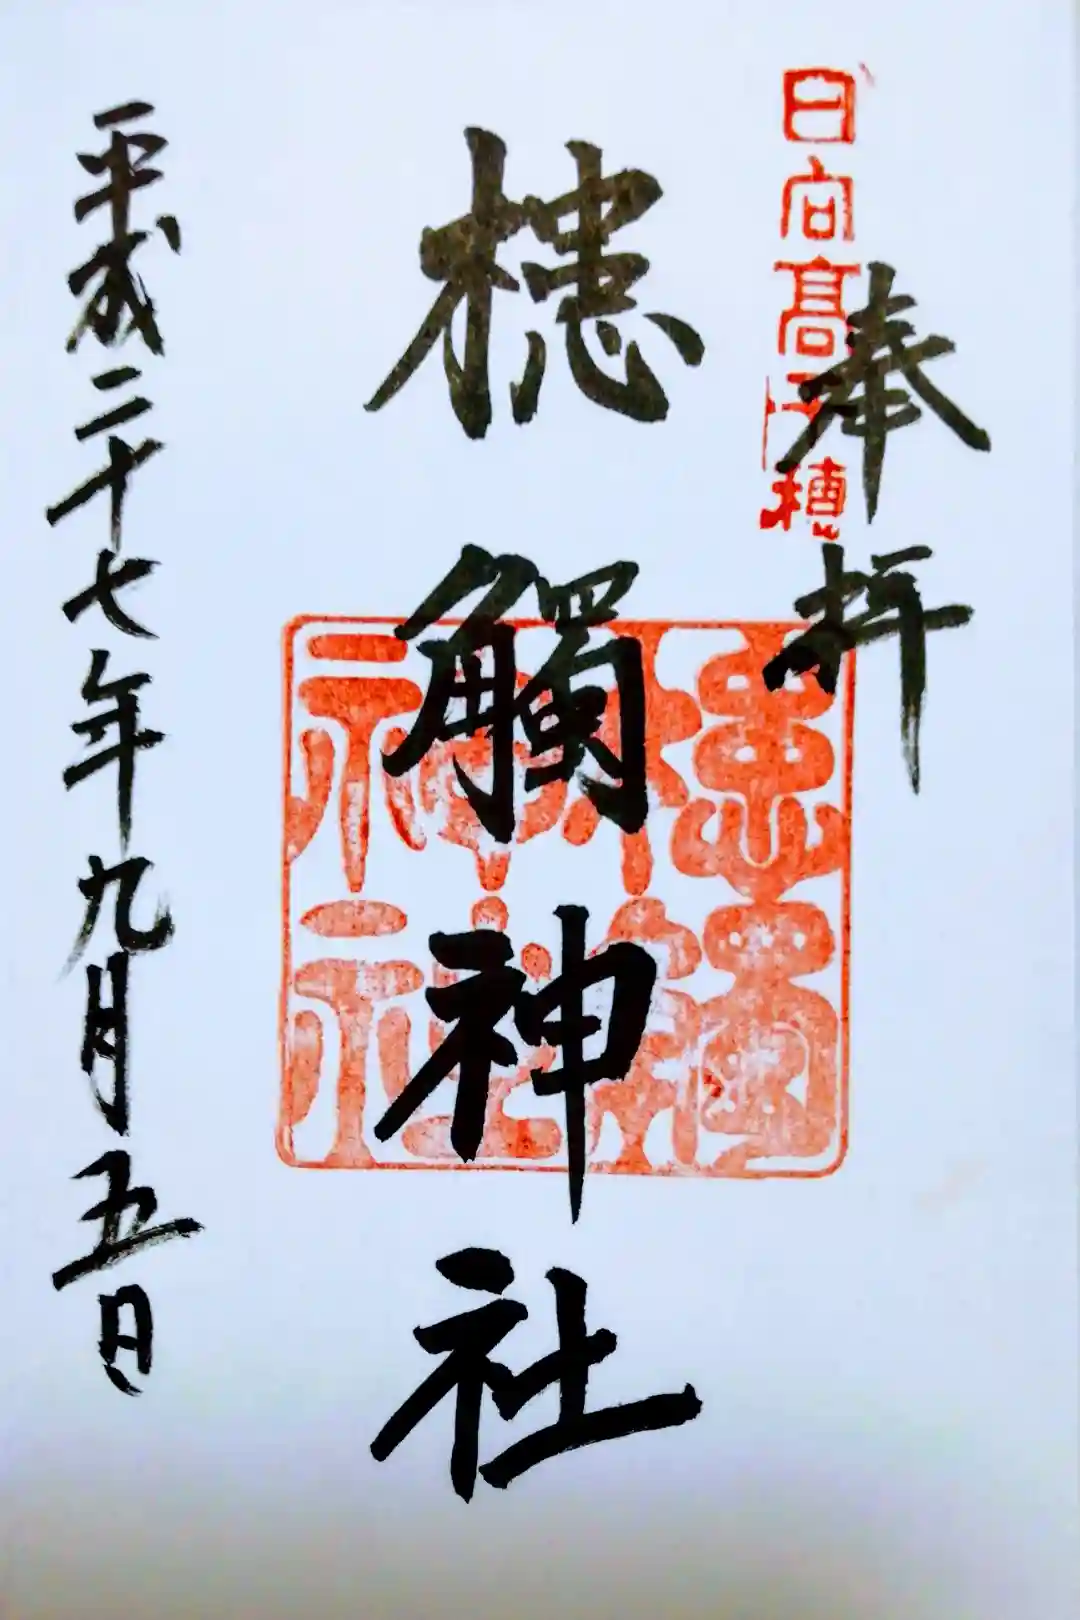 日向高千穂
奉拝
槵觸神社
槵觸神社
平成二十七年九月五日